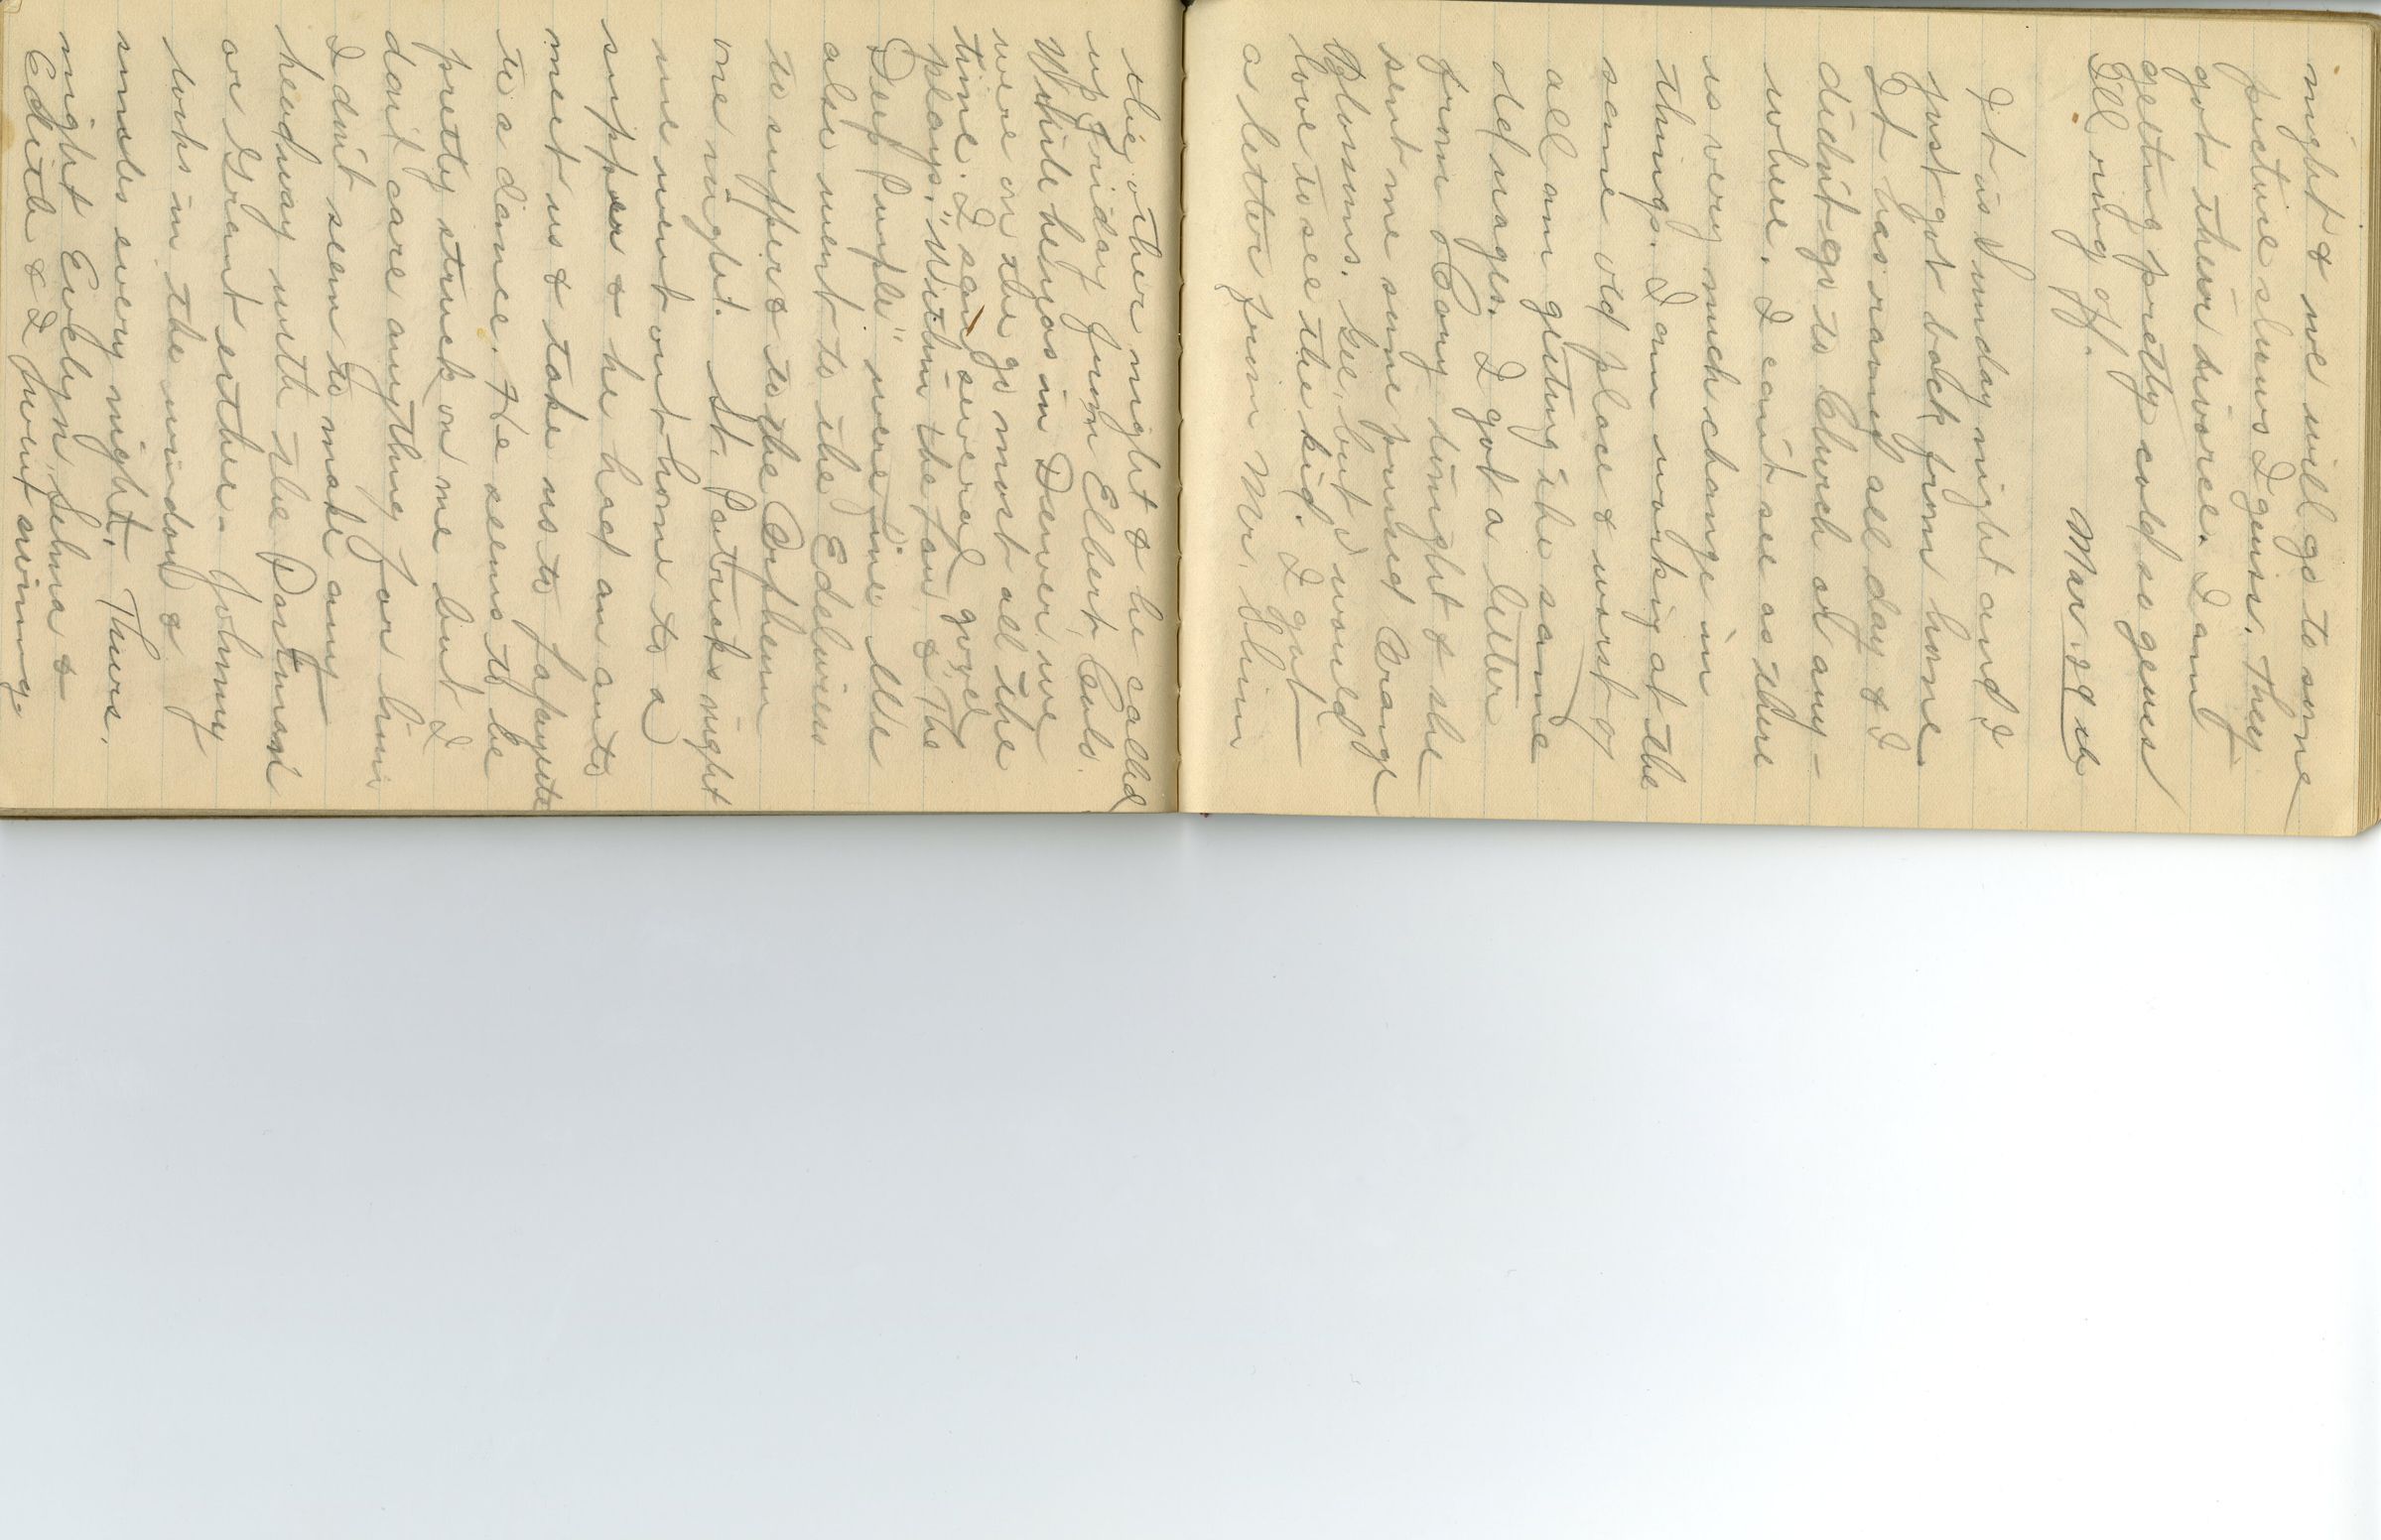 night & we will go to some
picture shows I guess. They
got their divorce. I am
getting pretty cold so guess
I'll ring off.
Mar. 29th
It is Sunday night and I
just got back from home.
It has rained all day & I
didn't go to Church or any-
where. I can't see as there
is very much change in
things. I am working at the
same old place & worst of
all am getting the same
old wages. I got a letter
from Cony tonight & she
sent me some pressed Orange
Blossoms. Gee, but I would
love to see the kid. I got
a letter from Mr. Slim
the other night & he called
up Friday from Elbert, Colo.
While he was in Denver, we
were on the go most all the
time. I saw several good
plays, "Within the Law" & "The
Deep Purple" were fine. We
also went to the Edelweiss
to supper & to the Orpheum
one night. St. Patrick's night
we went out home to a
supper & he had an auto
meet us & take us to Lafayette
to a dance. He seems to be
pretty struck on me but I
don't care anything for him.
I don't seem to make any
headway with the Postman
or Grant either. Johnny
looks in the window &
smiles every night. Thurs.
night Evelyn, Selma &
Edith & I went swimming